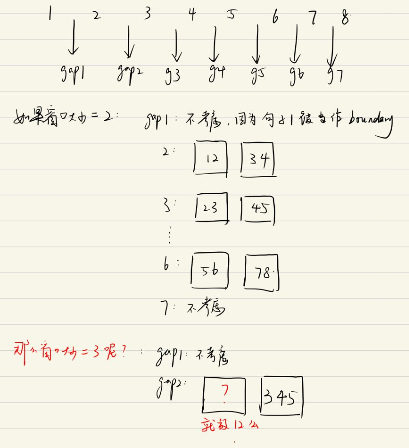 1 2 3 4 5 6 7 8
gap1 gap2 g3 g4 g5 g6 g7
如果窗口大小=2: gap1: 不考虑,因为句子1被当作boundary
2: 12 34
3: 23 45
⋮
6: 56 78
7: 不考虑
那么窗口大小=3呢?: gap1: 不考虑
gap2: ? 345
就放12么